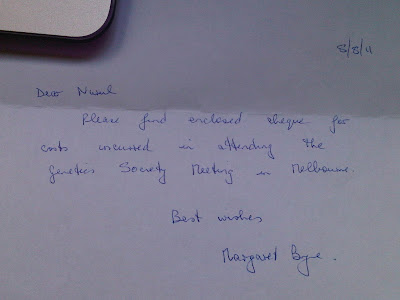 8/8/11
Dear
Please find enclosed cheque for
costs incurred in attending the
Genetics Society Meeting in Melbourne.
Best wishes
Margaret